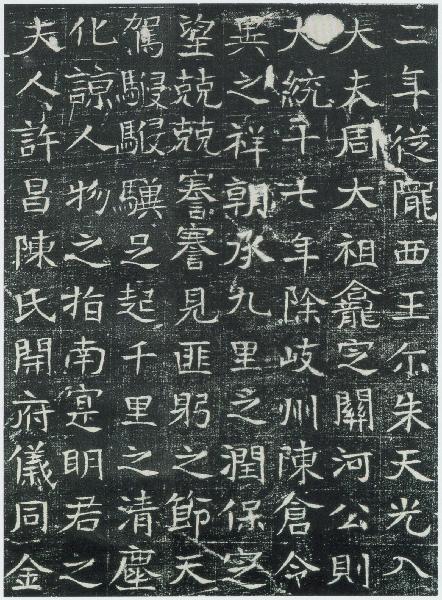 二年從隴西王尒朱天光入
大夫周大祖龕定關河公則
大統十七年除岐州陳倉令
異之祥朝承九里之潤保定
望兢兢謇謇見匪躬之節天
駕駸駸驥足起千里之清塵
化諒人物之指南寔明君之
夫人許昌陳氏開府儀同金